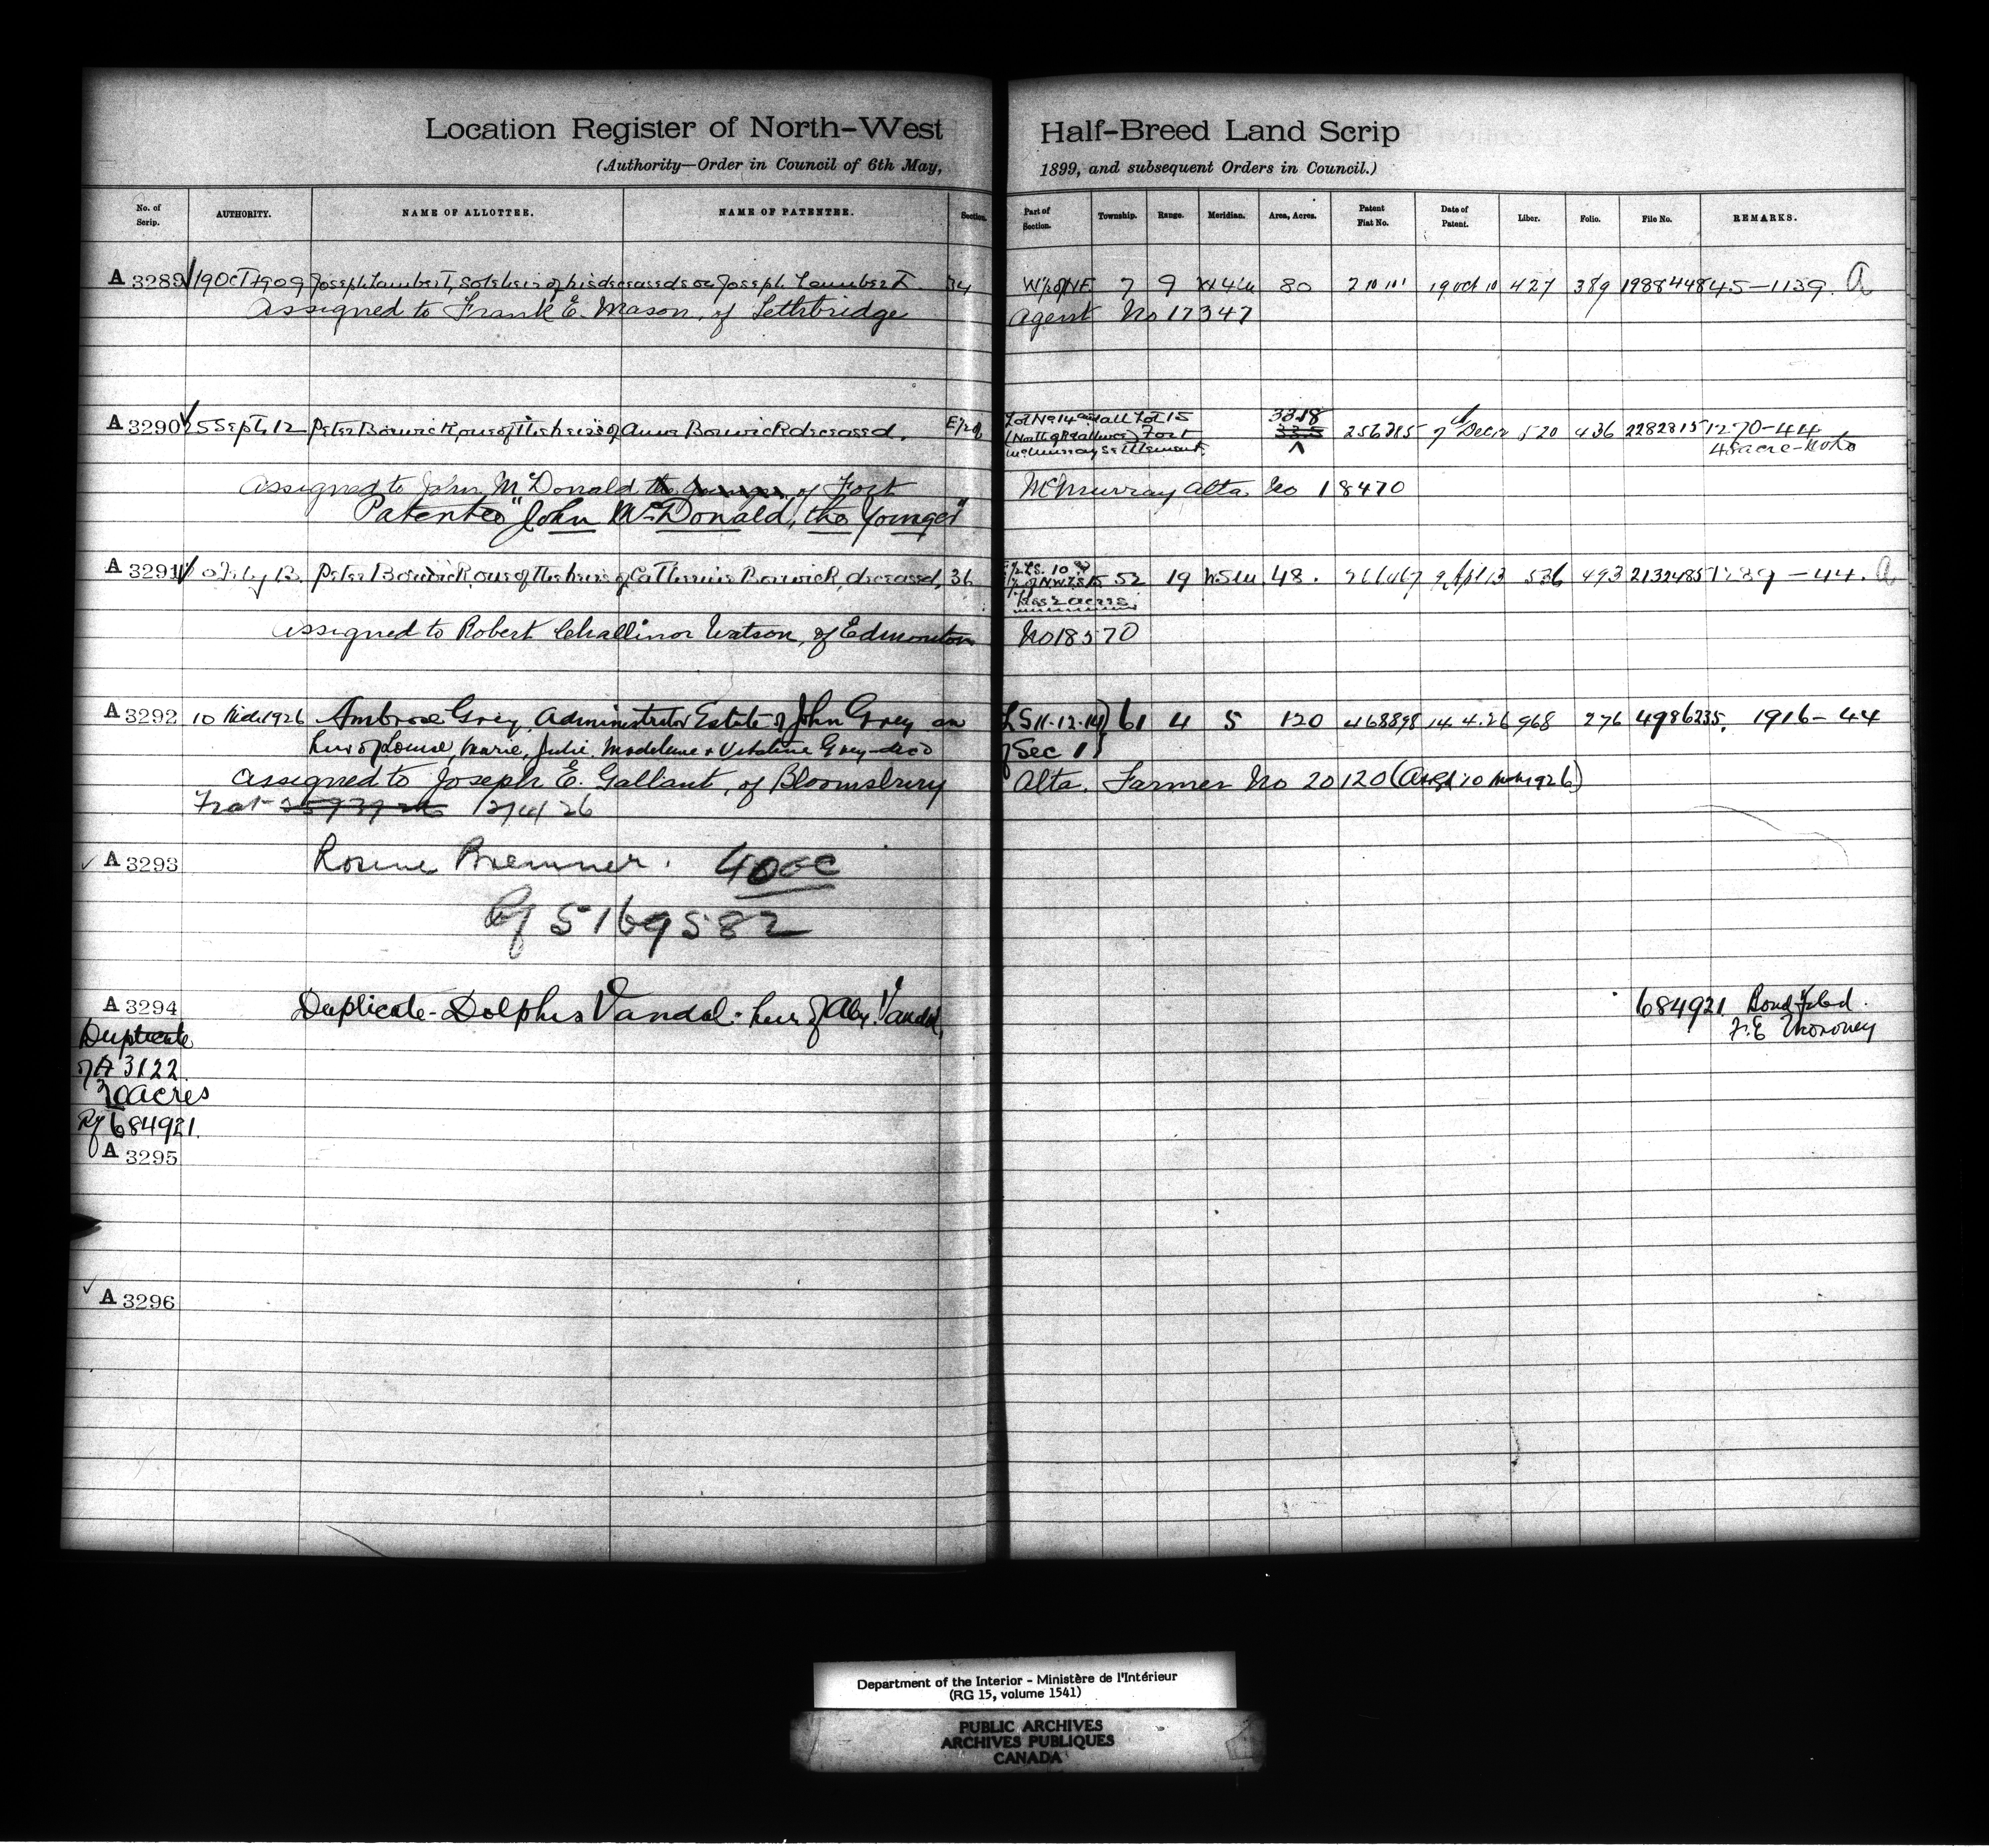 Location Register of North-West Half-Breed Land Scrip
(Authority—Order in Council of 6th May, 1899, and subsequent Orders in Council.)
No. of Scrip. AUTHORITY. NAME OF ALLOTTEE. NAME OF PATENTEE. Section. Part of Section. Township. Range. Meridian. Area, Acres. Patent Fiat No. Date of Patent. Liber. Folio. File No. REMARKS.
A 3289 19 Oct 1909 Joseph Lambert, sole heir of his deceased son Joseph Lambert. 34 W½ of NE 7 9 W4M 80 19 Oct 10 427 389 1988448 45-1139. A
Assigned to Frank E. Mason, of Lethbridge Agent No 17347
A 3290 25 Sept. 12 Peter Borwick, one of the heirs of Anna Borwick deceased. E½ of Lot No 14 and all Lot 15
(North of Reference) Fort
McMurray Settlement 33.18 256385 7 Dec 12 520 436 2282815 1270-44
Assigned to John McDonald of Fort McMurray Alta. No 18470
Patentee "John McDonald, the Younger"
A 3291 Peter Borwick, one of the heirs of Catherine Borwick, deceased, 36 52 19 W5M 48. 9 Apl 13 536 493 2132485 - 44. A
less 2 acres
Assigned to Robert Challinor Watson, of Edmonton No 18570
A 3292 10 1926 Ambrose Grey, Administrator Estate of John Grey an LS 11-12-14 61 4 5 120 468898 14.4.26 968 276 4986235. 1916-44
heir of Louise, Marie, Julie, Madeleine & Grey-dec'd of Sec 1
Assigned to Joseph E. Gallant, of Bloomsbury Alta. Farmer No 20120
12/4/26
A 3293 Bremner. 40
Rf 5169582
A 3294 Duplicate - Dolphis Vandal - heir of Alex. Vandal, 684921 Bond filed.
F. E. Moroney
Duplicate
of A 3122
acres
Rf 684921.
A 3295
A 3296
Department of the Interior - Ministère de l'Intérieur
(RG 15, volume 1541)
PUBLIC ARCHIVES
ARCHIVES PUBLIQUES
CANADA